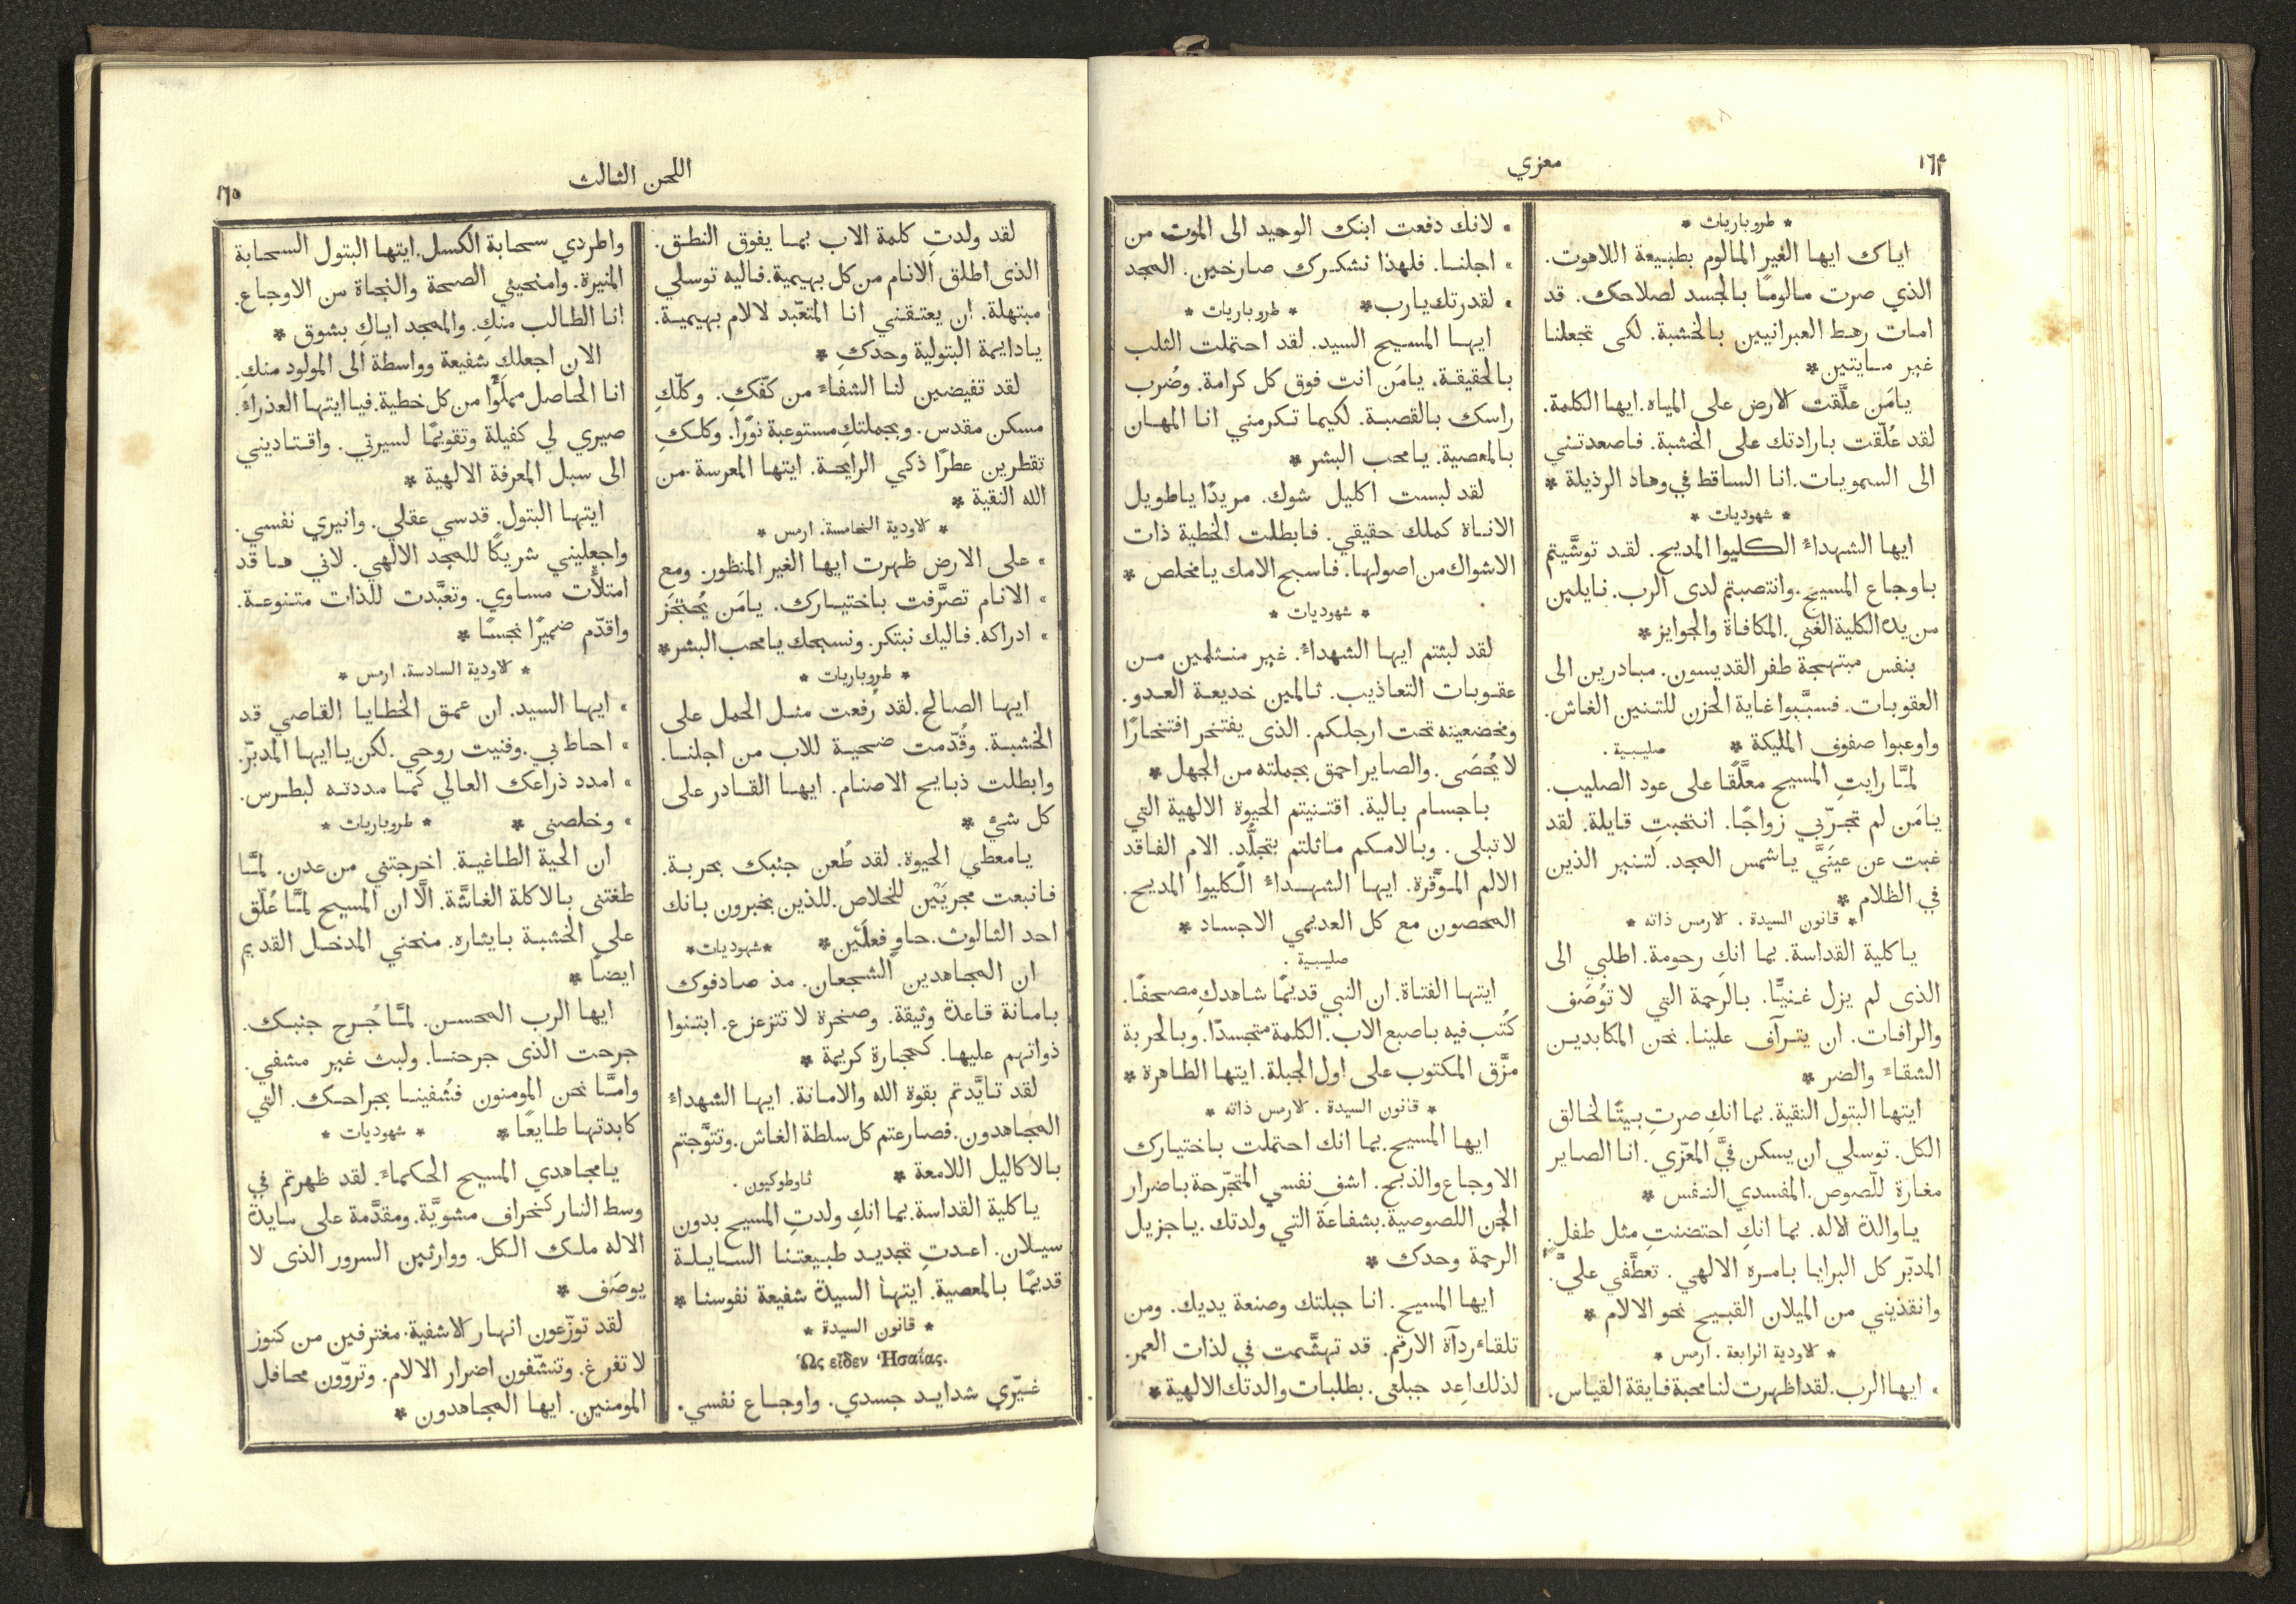 ١٦۴
معزي
* طروباريات *
اياك ايها الغير المالوم بطبيعة اللاهوت.
الذي صرت مالومًا بالجسد لصلاحك. قد
امات رهط العبرانيين بالخشبة. لكى تجعلنا
غير مايتين*
يامَن علَّقت الارض على المياه. ايها الكلمة.
لقد عُلّقت بارادتك على الخشبة. فاصعدتني
الى السمويات. انا الساقط في وهاد الرذيلة *
* شهوديات *
ايها الشهداء الكليوا المديح. لقد توشَّيتم
باوجاع المسيح. وانتصبتم لدى الرب. نايلين
من يده الكلية الغنى. المكافاة والجوايز*
بنفس مبتهجة طفر القديسون. مبادرين الى
العقوبات. فسبَّبوا غاية الحزن للتنين الغاش.
واوعبوا صفوف المليكة * صليبية.
لمَّا رايتِ المسيح معلَّقًا على عود الصليب.
يامَن لم تجرّبي زواجًا. انتحبتِ قايلة. لقد
غبت عن عينَيَّ ياشمس المجد. لتنير الذين
في الظلام *
* قانون السيدة. لارمس ذاته *
ياكلية القداسة. بما انكِ رحومة. اطلبي الى
الذى لم يزل غنيًّا. بالرحمة التي لا توُصَف
والرافات. ان يترآف علينا. نحن المكابدين
الشقاء والضر *
ايتها البتول النقية. بما انكِ صرتِ بيتًا لخالق
الكل. توسلي ان يسكن فيَّ المعّزي. انا الصاير
مغارة للّصوص. المفسدي النفس *
ياوالدة الاله. بما انكِ احتضنتِ مثل طفل.
المدبّر كل البرايا بامره الالهي. تعطَّفي عليَّ.
وانقذيني من الميلان القبيح نحو الالام *
* لاودية الرابعة. ارمس *
• ايها الرب. لقد اظهرت لنا محبة فايقة القياس.
• لانك دفعت ابنك الوحيد الى الموت من
• اجلنا. فلهذا نشكرك صارخين. المجد
• لقدرتك يارب* * طروباريات *
ايها المسيح السيد. لقد احتملت الثلب
بالحقيقة. يامَن انت فوق كل كرامة. وضُرب
راسك بالقصبة. لكيما تكرمني انا المهان
بالمعصية. يامحب البشر *
لقد لبست اكليل شوك. مريدًا ياطويل
الاناة كملك حقيقي. فابطلت الخطية ذات
الاشواك من اصولها. فاسبح الامك يامخلص *
* شهوديات *
لقد لبثتم ايها الشهداء. غير منثلمين من
عقوبات التعاذيب. ثالمين خديعة العدو.
ومخضعينه تحت ارجلكم. الذى يفتخر افتخارًا
لا يُحصَى. والصاير احمق بجملته من الجهل *
باجسام بالية. اقتنيتم الحيوة الالهية التي
لا تبلى. وبالامكم ماثلتم بتجلُّدٍ. الام الفاقد
الالم الموقَّرة. ايها الشهداء الكليوا المديح.
المحصون مع كل العديمي الاجساد *
صليبية.
ايتها الفتاة. ان النبي قديمًا شاهدكِ مصحفًا.
كُتب فيه باصبع الاب. الكلمة متجسدًا. وبالحربة
مزَّق المكتوب على اول الجبلة. ايتها الطاهرة *
* قانون السيدة. لارمس ذاته *
ايها المسيح. بما انك احتملت باختيارك
الاوجاع والذبح. اشفِ نفسي المتجّرحة باضرار
الجن اللصوصية. بشفاعة التي ولدتك. ياجزيل
الرحمة وحدك *
ايها المسيح. انا جبلتك وصنعة يديك. ومن
تلقاء ردآة الارقم. قد تهشَّمت في لذات العمر.
لذلك اعِد جبلتى. بطلبات والدتك الالهية *
اللحن الثالث
١٦٥
لقد ولدتِ كلمة الاب بما يفوق النطق.
الذى اطلق الانام من كل بهيمية. فاليه توسلي
مبتهلة. ان يعتقني انا المتعّبد لالام بهيمية.
يادايمة البتولية وحدكِ *
لقد تفيضين لنا الشفاء من كفّكِ. وكلّكِ
مسكن مقدس. وبجملتكِ مستوعبة نورًا. وكلكِ
تقطرين عطرًا ذكي الرايحة. ايتها المعرسة من
الله النقية *
* لاودية الخامسة. ارمس *
• على الارض ظهرت ايها الغير المنظور. ومع
• الانام تصرَّفت باختيارك. يامَن يُحتجَز
• ادراكه. فاليك نبتكر. ونسبحك يامحب البشر*
* طروباريات *
ايها الصالح. لقد رُفعت مثل الحمل على
الخشبة. وقُدّمت ضحية للاب من اجلنا.
وابطلت ذبايح الاصنام. ايها القادر على
كل شيْ *
يامعطي الحيوة. لقد طُعن جنبك بحربة.
فانبعت مجريَيْن للخلاص. للذين يخبرون بانك
احد الثالوث. حاوٍ فعلَين* *شهوديات*
ان المجاهدين الشجعان. مذ صادفوك
بامانة قاعدة وثيقة. وصخرة لا تتزعزع. ابتنوا
ذواتهم عليها. كحجارة كريمة *
لقد تايَّدتم بقوة الله والامانة. ايها الشهداء
المجاهدون. فصارعتم كل سلطة الغاش. وتتوَّجتم
بالاكاليل اللامعة * ثاوطوكيون.
ياكلية القداسة. بما انكِ ولدتِ المسيح بدون
سيلان. اعدتِ تجديد طبيعتنا السايلة
قديمًا بالمعصية. ايتها السيدة شفيعة نفوسنا *
* قانون السيدة *
Ὡς εἶδεν Ἡσαΐας.
غيّري شدايد جسدي. واوجاع نفسي.
واطردي سحابة الكسل. ايتها البتول السحابة
المنيرة. وامنحيني الصحة والنجاة من الاوجاع.
انا الطالب منكِ. والمجد اياكِ بشوق *
الان اجعلكِ شفيعة وواسطة الى المولود منكِ.
انا الحاصل مملّوًا من كل خطية. فيا ايتها العذراء.
صيري لي كفيلة وتقويمًا لسيرتي. واقتاديني
الى سبل المعرفة الالهية *
ايتها البتول. قدسي عقلي. وانيري نفسي.
واجعليني شريكًا للمجد الالهي. لاني ها قد
امتلأت مساوي. وتعبَّدت للذات متنوعة.
واقدّم ضميرًا نجسًا *
* لاودية السادسة. ارمس *
• ايها السيد. ان عمق الخطايا القاصي قد
• احاط بي. وفنيت روحي. لكن يا ايها المدبّر.
• امدد ذراعك العالي كما مددته لبطرس.
• وخلصني * * طروباريات *
ان الحية الطاغية. اخرجتني من عدن. لمَّا
طغتنى بالاكلة الغاشَّة. الّا ان المسيح لمَّا عُلّق
على الخشبة بايثاره. منحني المدخل القديم
ايضًا *
ايها الرب المحسن. لمَّا جُرح جنبك.
جرحت الذى جرحنا. ولبث غير مشفي.
وامَّا نحن المومنون فشُفينا بجراحك. التي
كابدتها طايعًا * * شهوديات *
يامجاهدي المسيح الحكماء. لقد ظهرتم في
وسط النار كخراف مشويَّة. ومقدَّمة على مايدة
الاله ملك الكل. ووارثين السرور الذى لا
يوصَف *
لقد توزّعون انهار الاشفية. مغترفين من كنوز
لا تفرغ. وتنشّفون اضرار الالام. وتروّون محافل
المومنين. ايها المجاهدون *